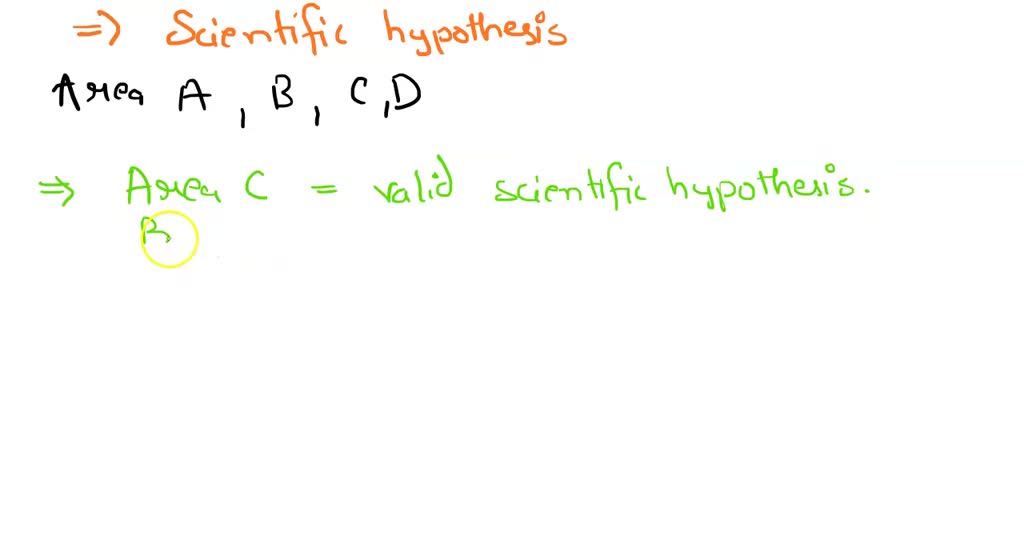 => Scientific hypothesis
Area A, B, C, D
=> Area C = valid scientific hypothesis.
B